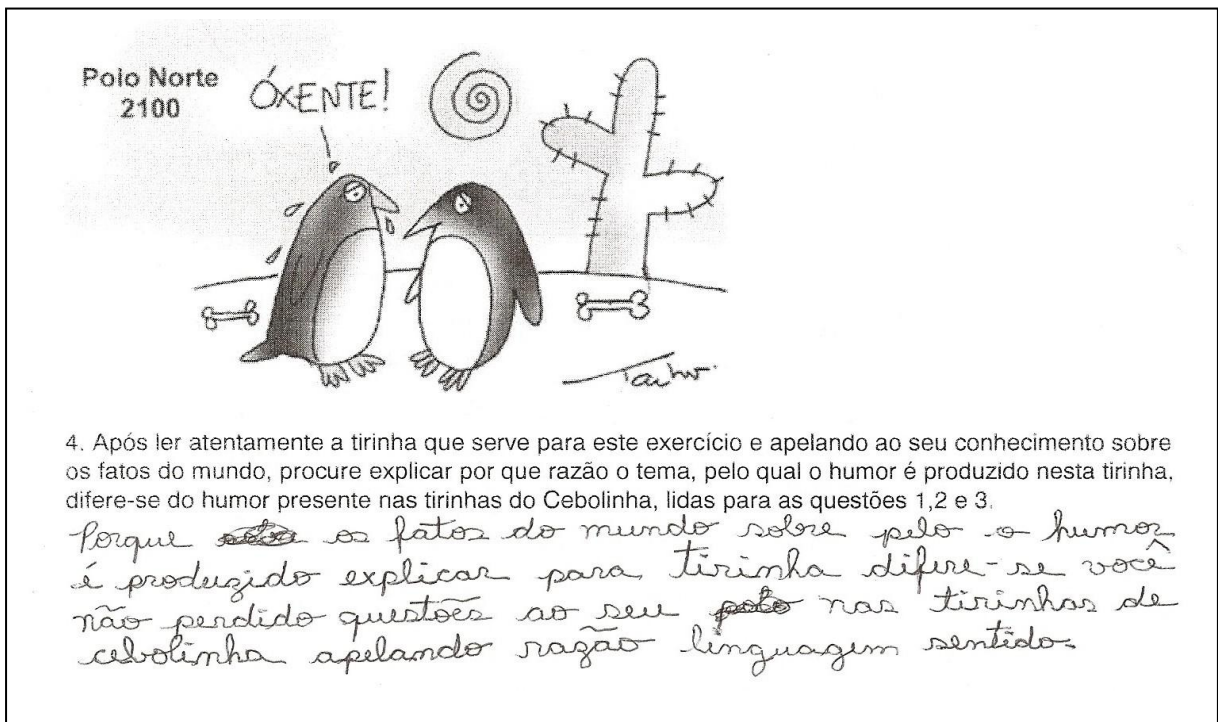 Polo Norte
2100
ÓXENTE!
4. Após ler atentamente a tirinha que serve para este exercício e apelando ao seu conhecimento sobre
os fatos do mundo, procure explicar por que razão o tema, pelo qual o humor é produzido nesta tirinha,
difere-se do humor presente nas tirinhas do Cebolinha, lidas para as questões 1,2 e 3.
Porque os fatos do mundo sobre pelo o humor
é produzido explicar para tirinha difere-se você
não perdido questões ao seu nas tirinhas de
cebolinha apelando razão linguagem sentido.